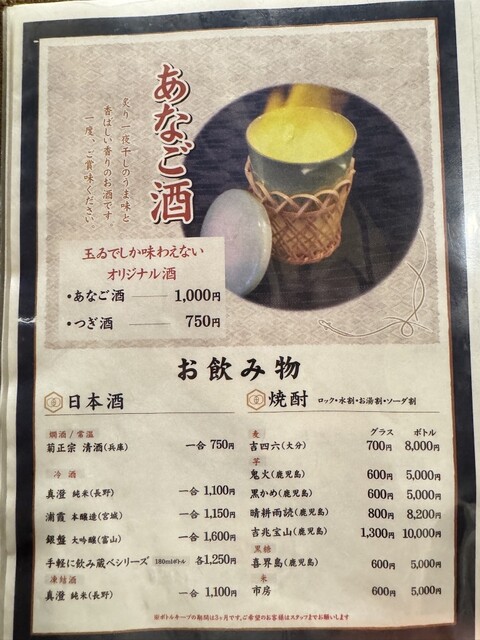 あなご酒
炙り一夜干しのうま味と
香ばしい香りのお酒です。
一度、ご賞味ください
玉ゐでしか味わえない
オリジナル酒
・あなご酒 1,000円
・つぎ酒 750円
お飲み物
日本酒
燗酒/常温
菊正宗 清酒(兵庫) 一合 750円
冷酒
真澄 純米(長野) 一合 1,100円
浦霞 本醸造(宮城) 一合 1,150円
銀盤 大吟醸(富山) 一合 1,600円
手軽に飲み蔵べシリーズ 180mlボトル 各1,250円
凍結酒
真澄 純米(長野) 一合 1,100円
焼酎 ロック・水割・お湯割・ソーダ割
麦 グラス ボトル
吉四六(大分) 700円 8,000円
芋
鬼火(鹿児島) 600円 5,000円
黒かめ(鹿児島) 600円 5,000円
晴耕雨読(鹿児島) 800円 8,200円
吉兆宝山(鹿児島) 1,300円 10,000円
黒糖
喜界島(鹿児島) 600円 5,000円
米
市房 600円 5,000円
※ボトルキープの期間は3ヶ月です。ご希望のお客様はスタッフまでお願いします